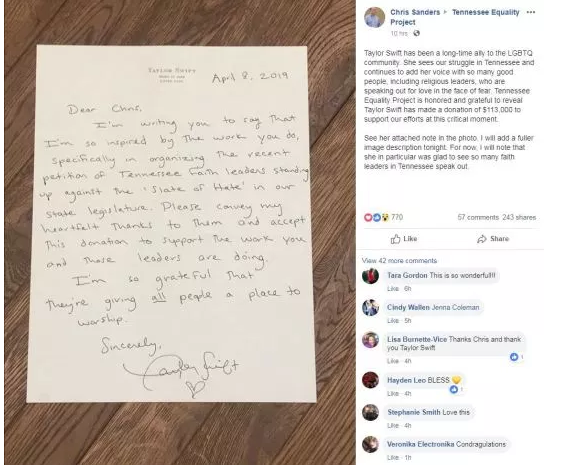 TAYLOR SWIFT
April 8, 2019
Dear Chris,
I'm writing you to say that
I'm so inspired by the work you do,
specifically in organizing the recent
petition of Tennessee faith leaders standing
up against the 'Slate of Hate' in our
state legislature. Please convey my
heartfelt thanks to them and accept
this donation to support the work you
and those leaders are doing.
I'm so grateful that
they're giving all people a place to
worship.
Sincerely,
Taylor Swift
Chris Sanders ▸ Tennessee Equality
Project
10 hrs
Taylor Swift has been a long-time ally to the LGBTQ
community. She sees our struggle in Tennessee and
continues to add her voice with so many good
people, including religious leaders, who are
speaking out for love in the face of fear. Tennessee
Equality Project is honored and grateful to reveal
Taylor Swift has made a donation of $113,000 to
support our efforts at this critical moment.
See her attached note in the photo. I will add a fuller
image description tonight. For now, I will note that
she in particular was glad to see so many faith
leaders in Tennessee speak out.
770
57 comments 243 shares
Like
Share
View 42 more comments
Tara Gordon This is so wonderful!!!
Like · 6h
Cindy Wallen Jenna Coleman
Like · 5h
Lisa Burnette-Vice Thanks Chris and thank
you Taylor Swift
1
Like · 4h
Hayden Leo BLESS
1
Like · 4h
Stephanie Smith Love this
Like · 4h
Veronika Electronika Condragulations
Like · 1h